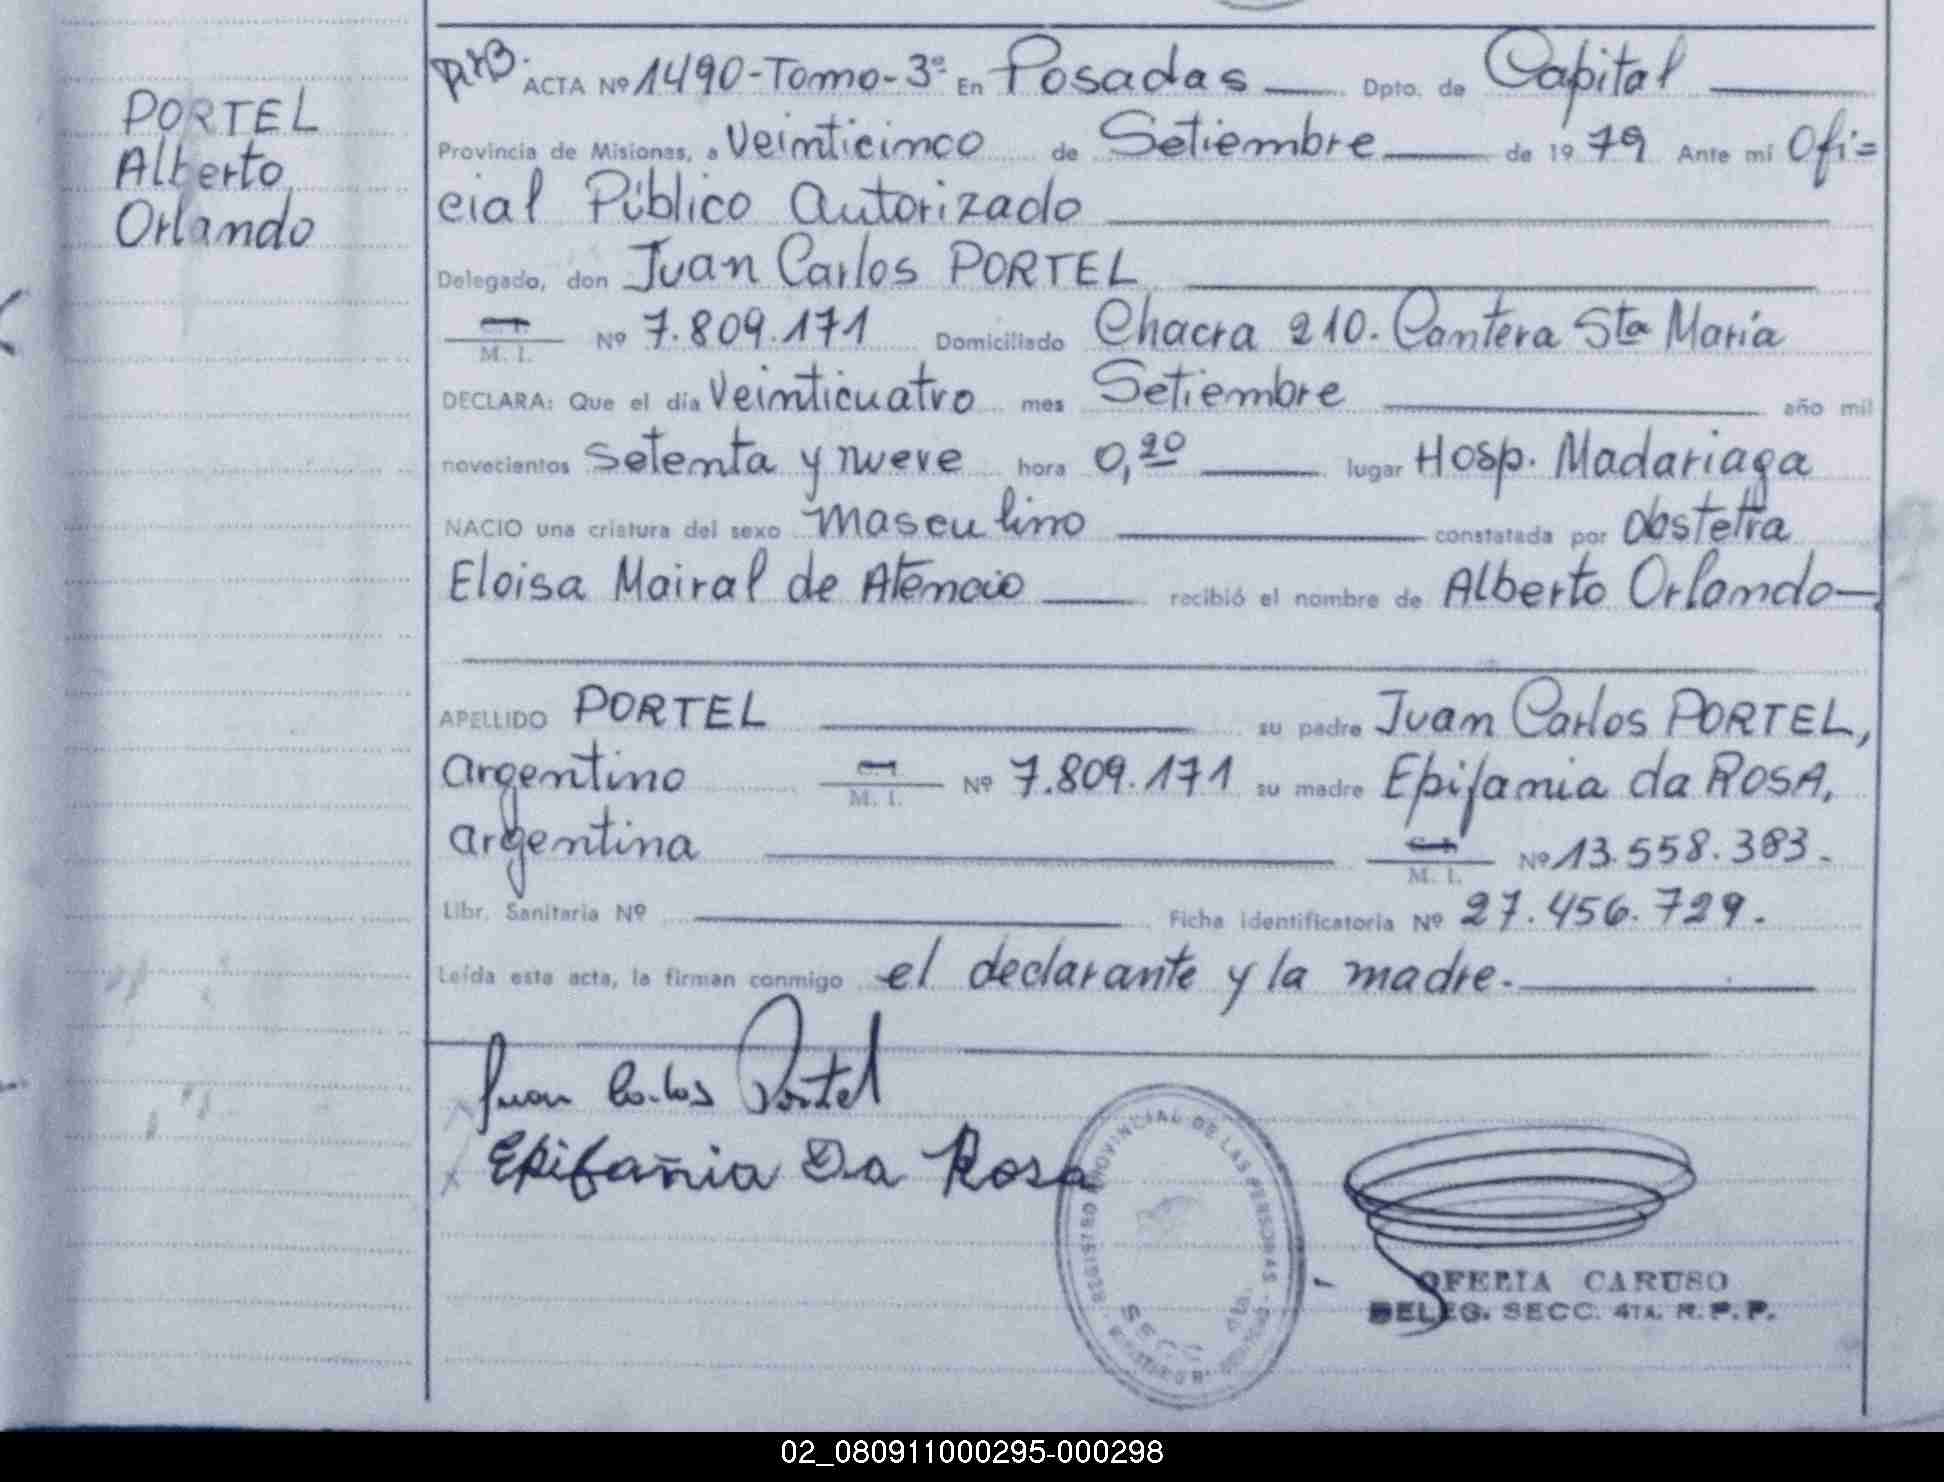 PORTEL
Alberto
Orlando
ACTA Nº 1490-Tomo-3º En Posadas Dpto. de Capital
Provincia de Misiones, a Veinticinco de Setiembre de 1979 Ante mí Ofi=
cial Público Autorizado
Delegado, don Juan Carlos PORTEL
M. I. Nº 7.809.171 Domiciliado Chacra 210. Cantera Sta María
DECLARA: Que el día Veinticuatro mes Setiembre año mil
novecientos setenta y nueve hora 0,20 lugar Hosp. Madariaga
NACIO una criatura del sexo masculino constatada por obstetra
Eloisa Mairal de Atencio recibió el nombre de Alberto Orlando
APELLIDO PORTEL su padre Juan Carlos PORTEL,
argentino M. I. Nº 7.809.171 su madre Epifania da ROSA,
argentina M. I. Nº 13.558.383.
Libr. Sanitaria Nº Ficha identificatoria Nº 27.456.729.
Leída esta acta, la firman conmigo el declarante y la madre.
Juan Carlos Portel
Epifañia Da Rosa
REGISTRO PROVINCIAL DE LAS PERSONAS
SECC
OFELIA CARUSO
DELEG. SECC. 4TA. R.P.P.
02_080911000295-000298